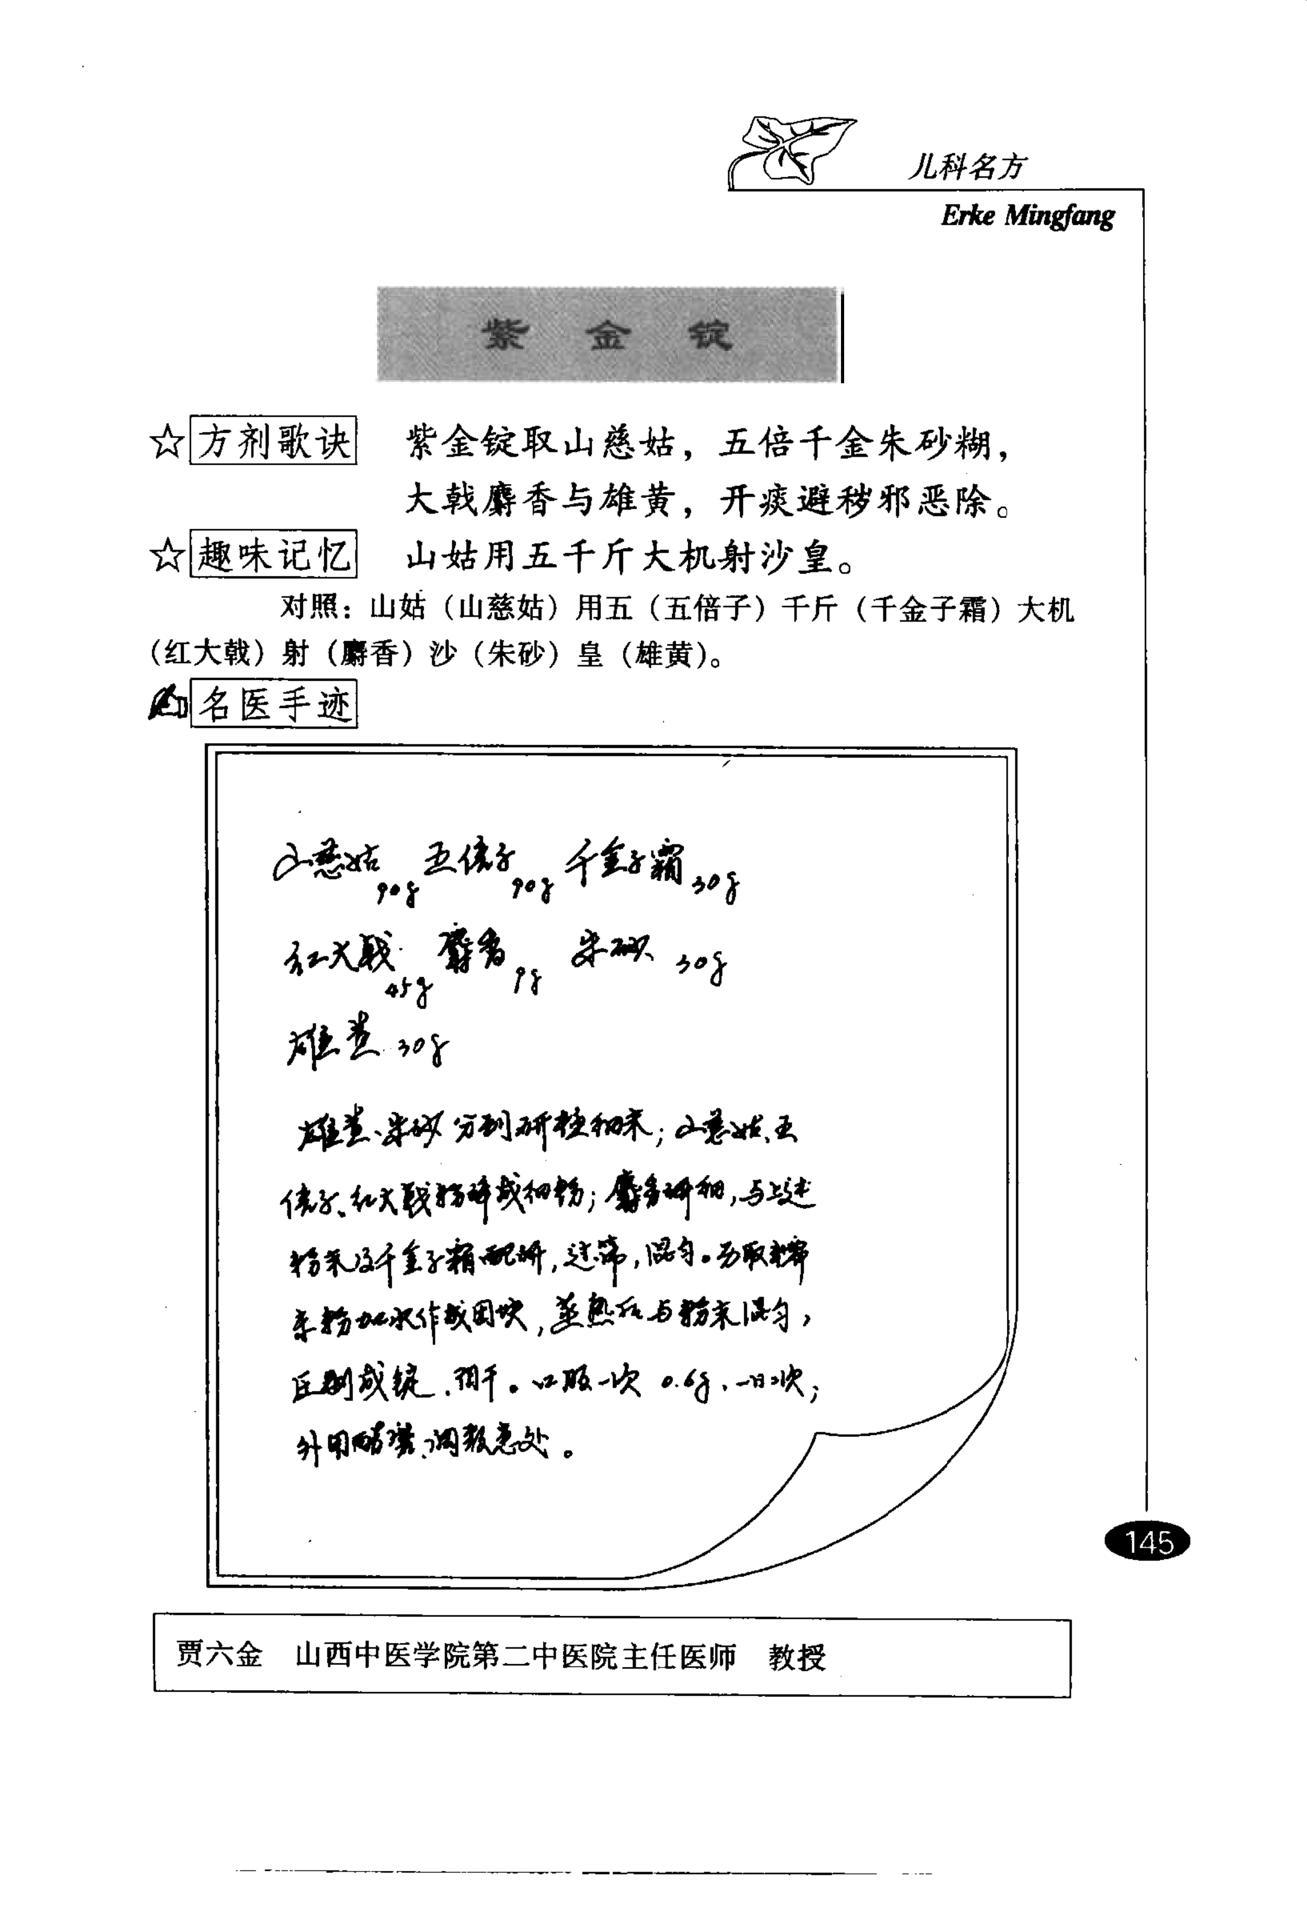 儿科名方
Erke Mingfang
紫金锭
☆方剂歌诀 紫金锭取山慈姑，五倍千金朱砂糊，
大戟麝香与雄黄，开痰避秽邪恶除。
☆趣味记忆 山姑用五千斤大机射沙皇。
对照：山姑（山慈姑）用五（五倍子）千斤（千金子霜）大机
（红大戟）射（麝香）沙（朱砂）皇（雄黄）。
名医手迹
山慈姑90g 五倍子90g 千金子霜30g
红大戟45g 麝香9g 朱砂30g
雄黄30g
雄黄、朱砂分别研极细末；山慈姑、五
倍子、红大戟粉碎成细粉；麝香研细，与上述
粉末及千金子霜配研，过筛，混匀。另取糯
米粉加水作成团块，蒸熟后与粉末混匀，
压制成锭，阴干。口服一次0.6g，一日二次；
外用醋磨，调敷患处。
145
贾六金 山西中医学院第二中医院主任医师 教授